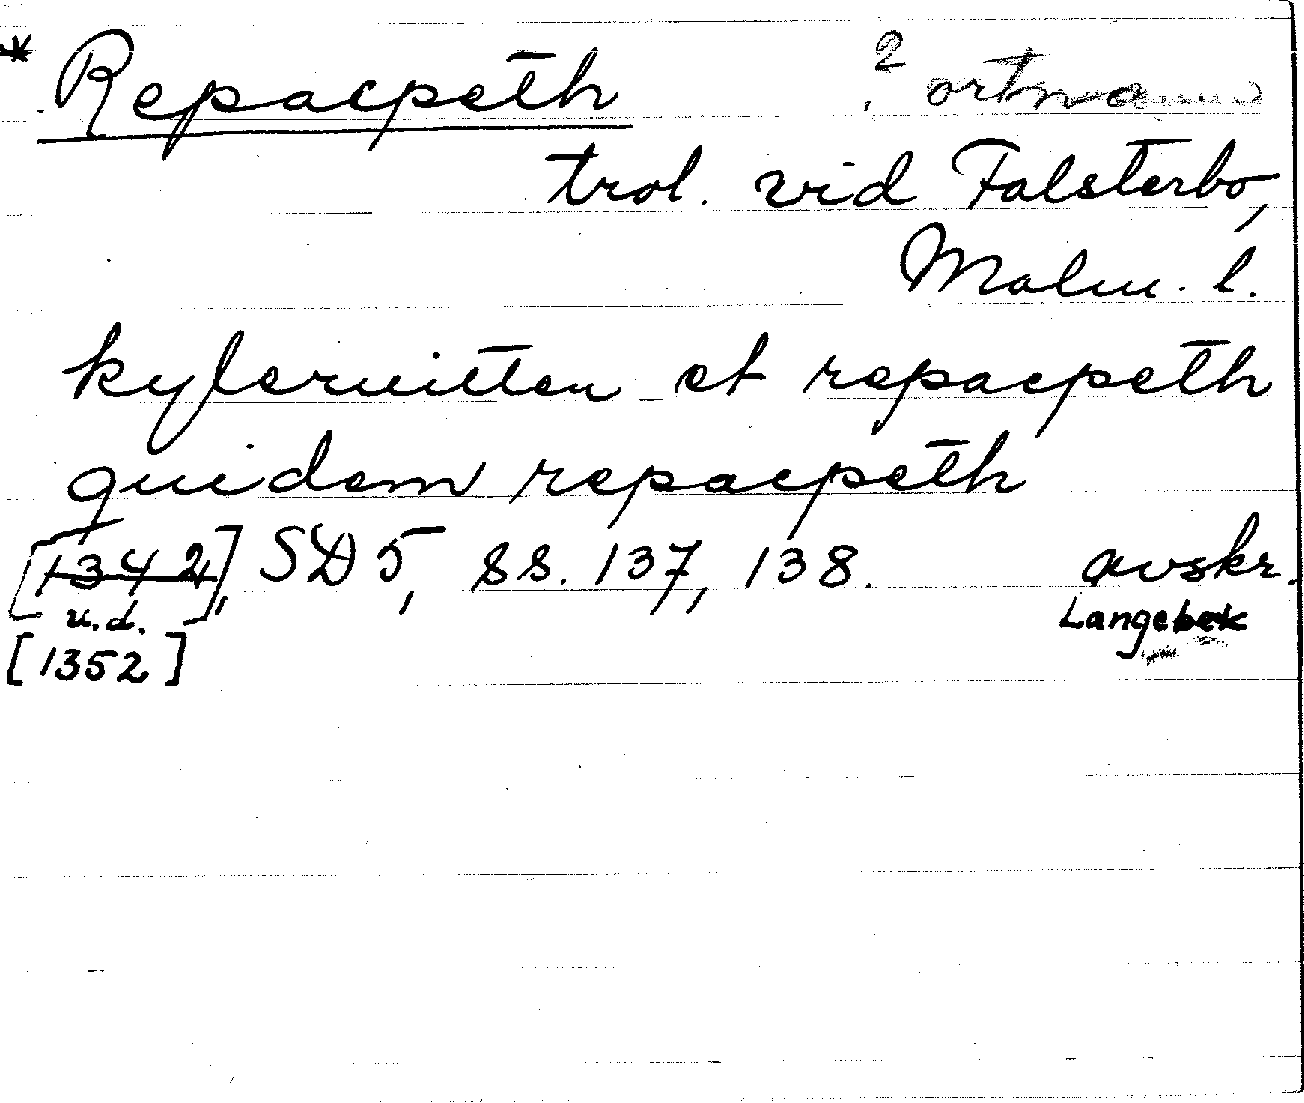 * Repacpeth ? ortnamn
trol. vid Falsterbo,
Malm. l.
kylernitten et repacpeth
quidem repacpeth
[1342], SD 5, ss. 137, 138. avskr.
u.d. Langebek
[1352]